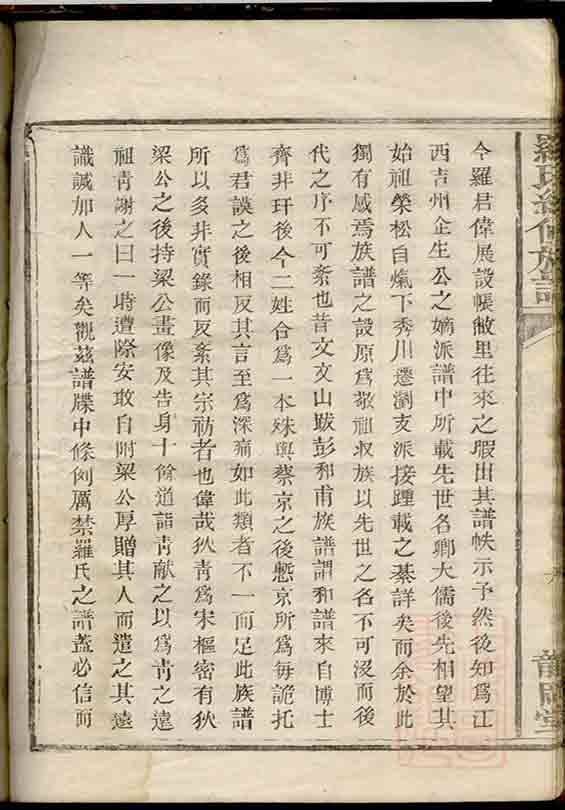 今羅君偉展設帳敝里往來之暇出其譜帙示予然後知爲江
西吉州企生公之嫡派譜中所載先世名卿大儒後先相望其
始祖榮松自熂下秀川遷瀏支派接踵載之綦詳矣而余於此
獨有感焉族譜之設原爲敬祖收族以先世之名不可沒而後
代之序不可紊也昔文文山跋彭和甫族譜謂和譜來自博士
齊非玕後今二姓合爲一本殊與蔡京之後慙京所爲每詭托
爲君謨之後相反其言至爲深痛如此類者不一而足此族譜
所以多非實錄而反紊其宗祊者也偉哉狄靑爲宋樞密有狄
梁公之後持梁公畫像及告身十餘道詣靑献之以爲靑之遠
祖靑謝之曰一時遭際安敢自附梁公厚贈其人而遣之其遠
識誠加人一等矣觀茲譜牒中條例厲禁羅氏之譜蓋必信而
羅氏續修族譜